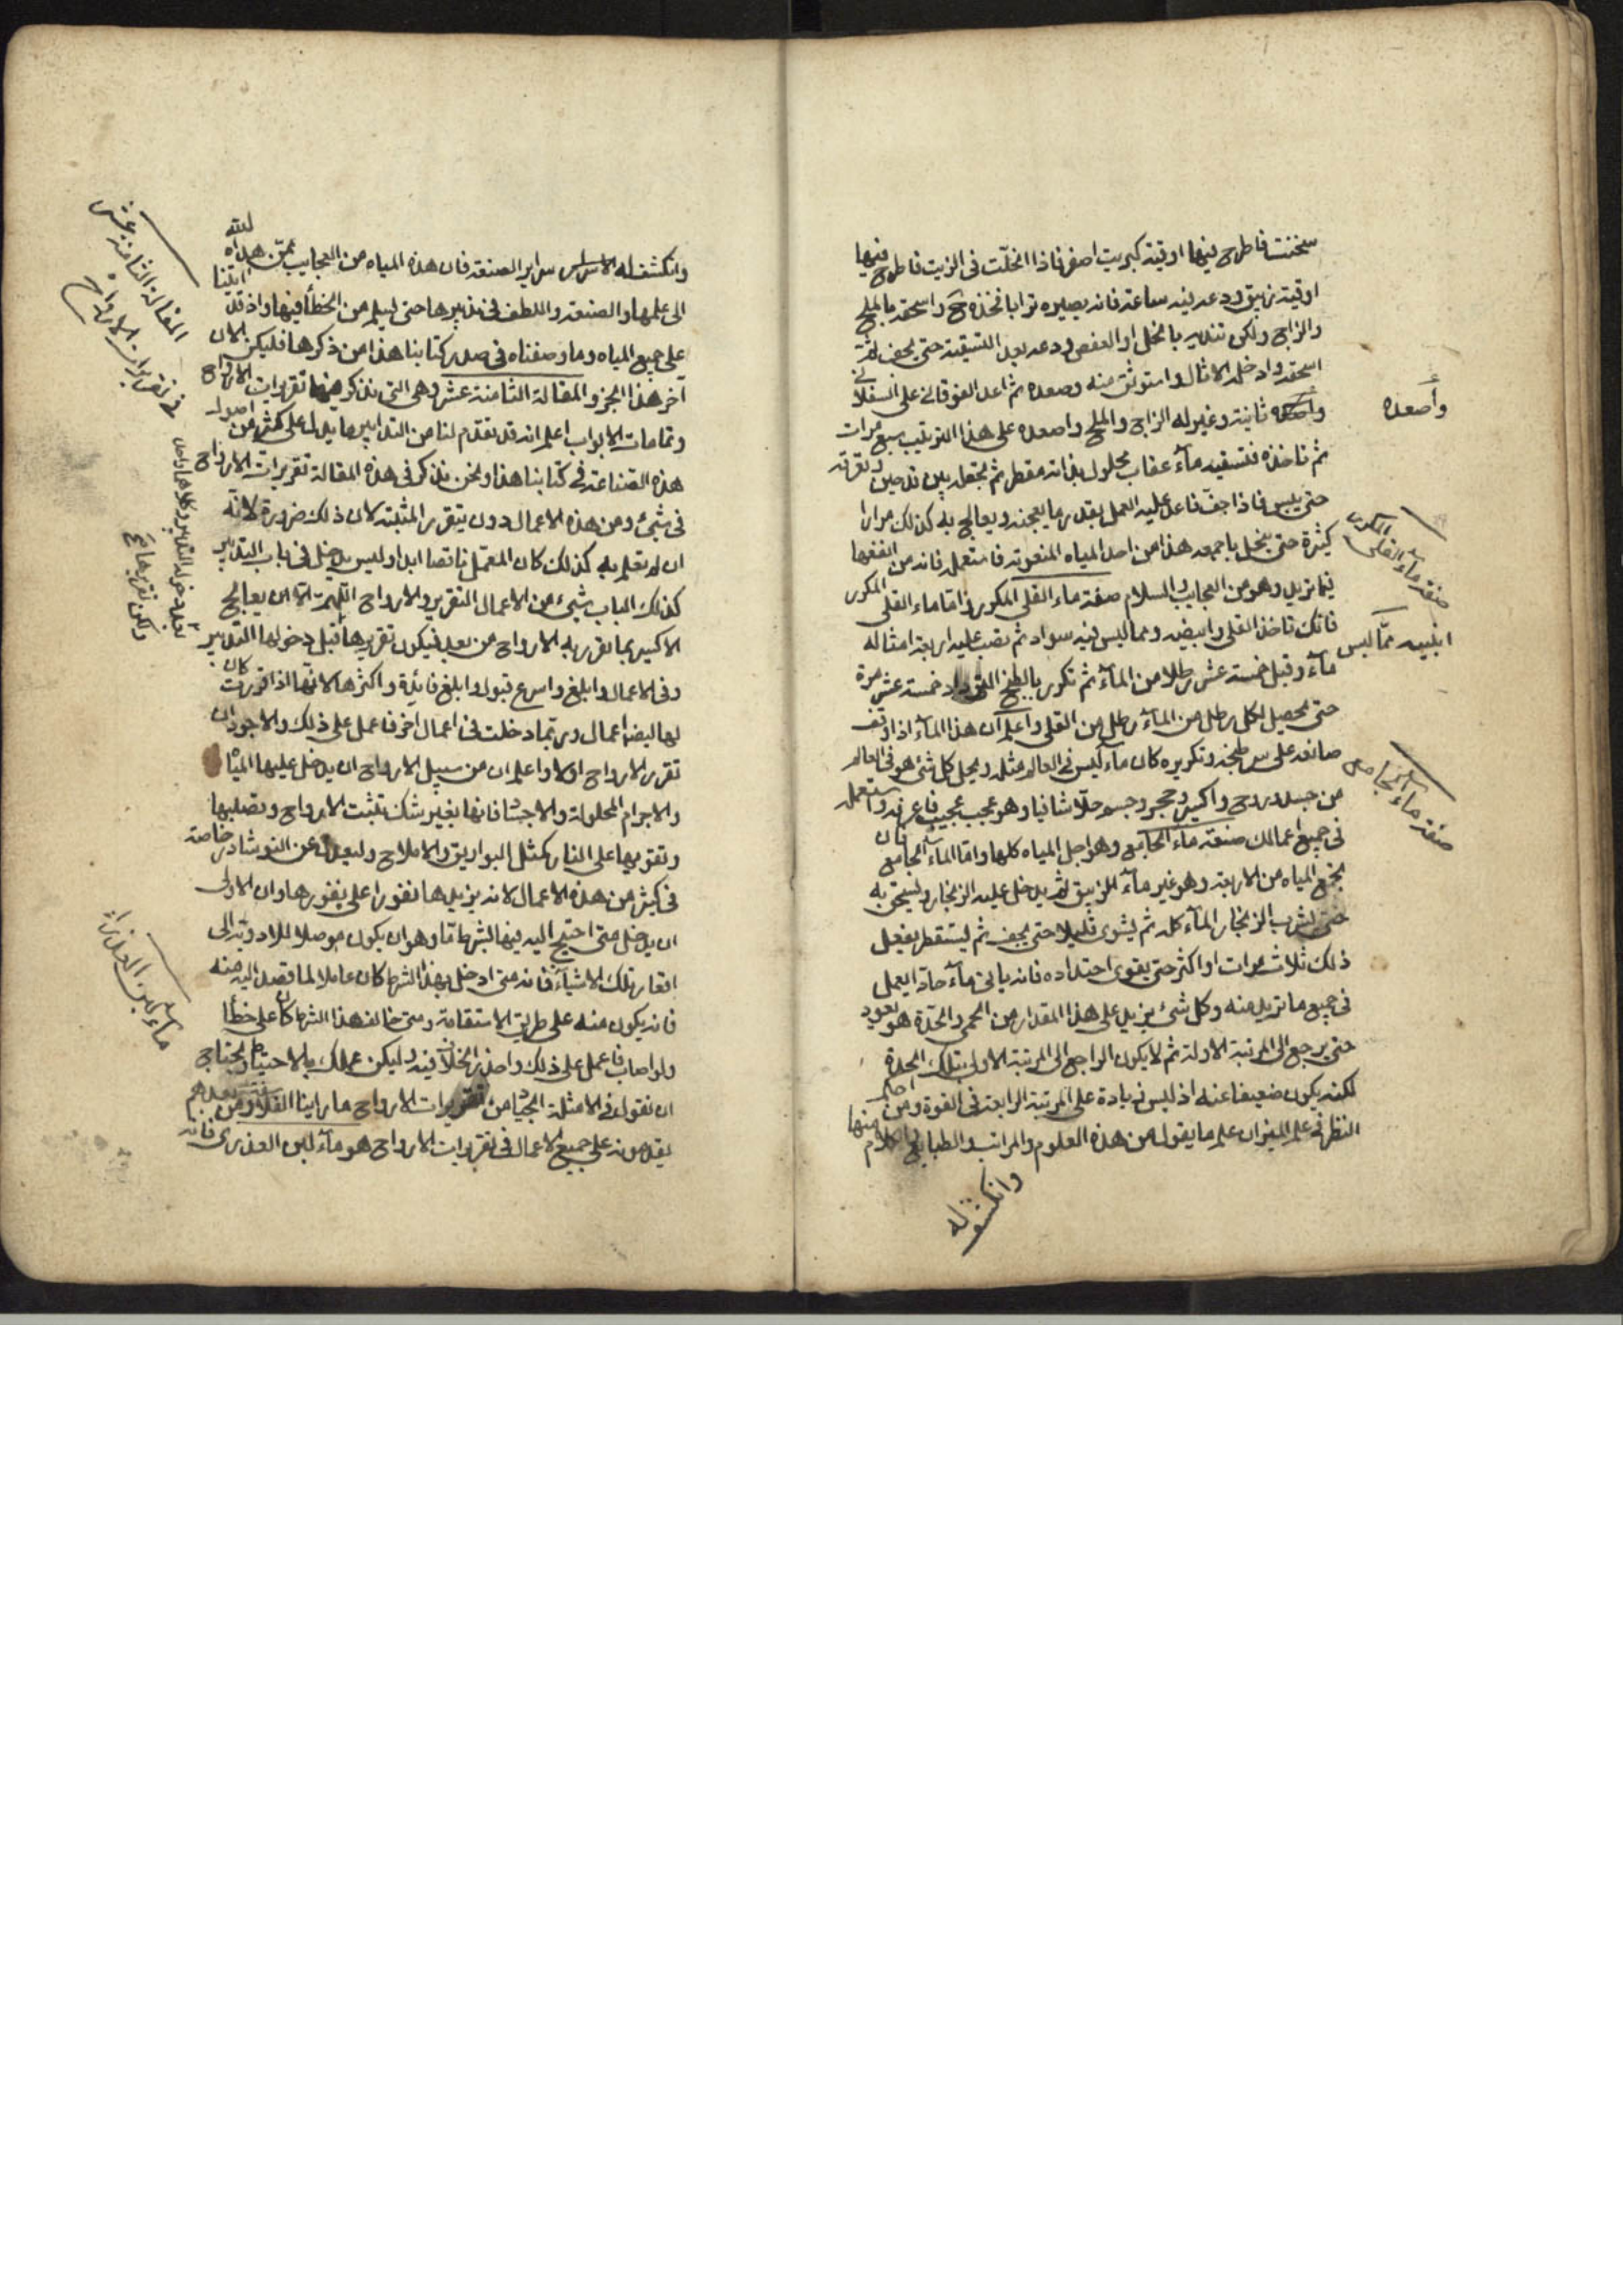 سخنت فاطرح فيها اوقية كبريت اصفر فاذا انحلت فى الزيت فاطرح فيها
اوقية زيبق ودعه فيه ساعة فانه يصيره ترابا فخذه واسحقه بالملح
والزاج وليكن تدبيره بالخل او العفص ودعه بعد التسقية حتى يجف ثم
اسحقه وادخله الاثال واستوثق منه وصعده ثم اعد الفوقانى على السفلانى
ثانية وغير له الزاج والملح واصعده على هذا الترتيب سبع مرات
وأصعده
ثم تاخذه فتسقيه مآء عقاب محلول بذاته مقطر ثم يجعل بين قدحين
حتى ييبس فاذا جف فاعد عليه العمل بقدر ما يعجنه ويعالج به كذلك مرارا
كثيرة حتى ينحل باجمعه هذا من احد المياه المنعوتة فاستعمله فانه من انفعها
صفة مآء القلى المكرر
فيما تريد وهو من العجايب والسلام صفة ماء القلى المكرر واما ماء القلى المكرر
فانك تاخذ القلى وابيضه ومما ليس فيه سواد ثم تصب عليه اربعة امثاله
ابيضه ممّا ليس
مآء وقيل خمسة عشر رطلا من المآء ثم تكرر بالطبخ خمسة عشر مرة
حتى يحصل لكل رطل من المآء رطل من القلى واعلم ان هذا المآء اذا وقف
صانعه على سر طبخه وتكريره كان مآء ليس فى العالم مثله ويحل كل شئ هو فى العالم
صفة ماء الجامع
من جسد وروح واكسير وحجر وجسم حلا شافيا وهو عجب عجيب فاعرفه واستعمله
فى جميع اعمالك صفة مآء الجامع وهو اجل المياه كلها واما المآء الجامع فان
يجمع المياه من الاربعة وهو غير مآء الزيبق ثم يدخل عليه الزنجار وليسحق به
حتى يشرب الزنجار المآء كله ثم يشوى قليلا حتى يجف ثم ليستقطر يفعل
ذلك ثلاث مرات او اكثر حتى يقوى احتداده فانه ياتى مآء حادا يعمل
فى جميع ما تريد منه وكل شئ يزيد على هذا المقدار من الحمى والحدة هو يعود
حتى يرجع الى المرتبة الاولة ثم لا يكون الراجع الى المرتبة الاولى بتلك الحدة
لكنه يكون ضعيفا عنه اذ ليس زيادة على المرتبة الرابعة فى القوة ومن احكم
النظر فى علم الميزان علم ما يقول من هذه العلوم والمراتب والطبايع
وانكشف له
وانكشف له الاساس سراير الصنعة فان هذه المياه من العجايب
الى علمها والصنعة واللطف فى تدبيرها حتى يسلم من الخطأ فيها واذ قد اتينا
على جميع المياه وما وصفناه فى صدر كتابنا هذا من ذكرها فليكن الان
المقالة الثامنة عشر
فى تقريرات الارواح
آخر هذا الجزو المقالة الثامنة عشر وهى التى نذكر فيها تقريرات الارواح
وتمامات الابواب اعلم انه قد تقدم لنا من التدابير ما يدل على كثير من اصول
هذه الصناعة فى كتابنا هذا ونحن نذكر فى هذه المقالة تقريرات الارواح
فى شئ ومن هذه الاعمال دون يتقرر المثبتة لان ذلك ضرورة لانه
ان لم يعلم به كذلك كان العمل ناقصا ابدا وليس يدخل فى باب التدبير
كذلك الباب شئ من الاعمال التقرير والارواح اللهم الا ان يعالج
الاكسير بما تقرر به الارواح من بعد فيكون تقريرها قبل دخولها التدبير
وفى الاعمال وابلغ واسرع قبول وابلغ فائدة واكثرها لانها اذا قررت كان
لها ايضا اعمال وربما دخلت فى اعمال اخر فاعمل على ذلك والاجود ان
تقرر الارواح اولا واعلم ان من سبيل الارواح ان يدخل عليها المياه
والاجرام المحلولة والاجساد فانها بغير شك تثبت الارواح وتصلبها
وتقويها على النار كمثل البواريق والاملاح وليعدل عن النوشادر خاصة
فى كثير من هذه الاعمال لانه يزيدها نفورا على نفورها وان الاولى
ان يدخل متى احتيج اليه فيها بشرط ما وهو ان يكون موصلا للادوية الى
اقعار تلك الاشيآء فانه متى ادخل بهذا الشرط كان عاملا لما قصد اليه منه
ماء لبن العذراء
فانه يكون منه على طريق الاستقامة ومتى خالف هذا الشرط كان على خطأ
ولو اصاب فاعمل على ذلك واحذر الخلاف فيه وليكن عملك بالاحتياط ويحتاج
ان نقول فى الامثلة الجياد من تقريرات الارواح ما راينا الفلاسفة
يقدمونه على جميع الاعمال فى تقريرات الارواح هو مآء لبن العذرى فانه